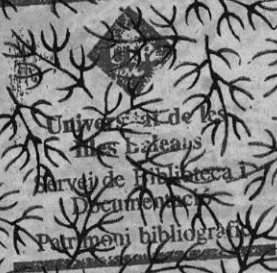 Universitat de les
Illes Balears
Servei de Biblioteca i
Documentació
Patrimoni bibliogràfic